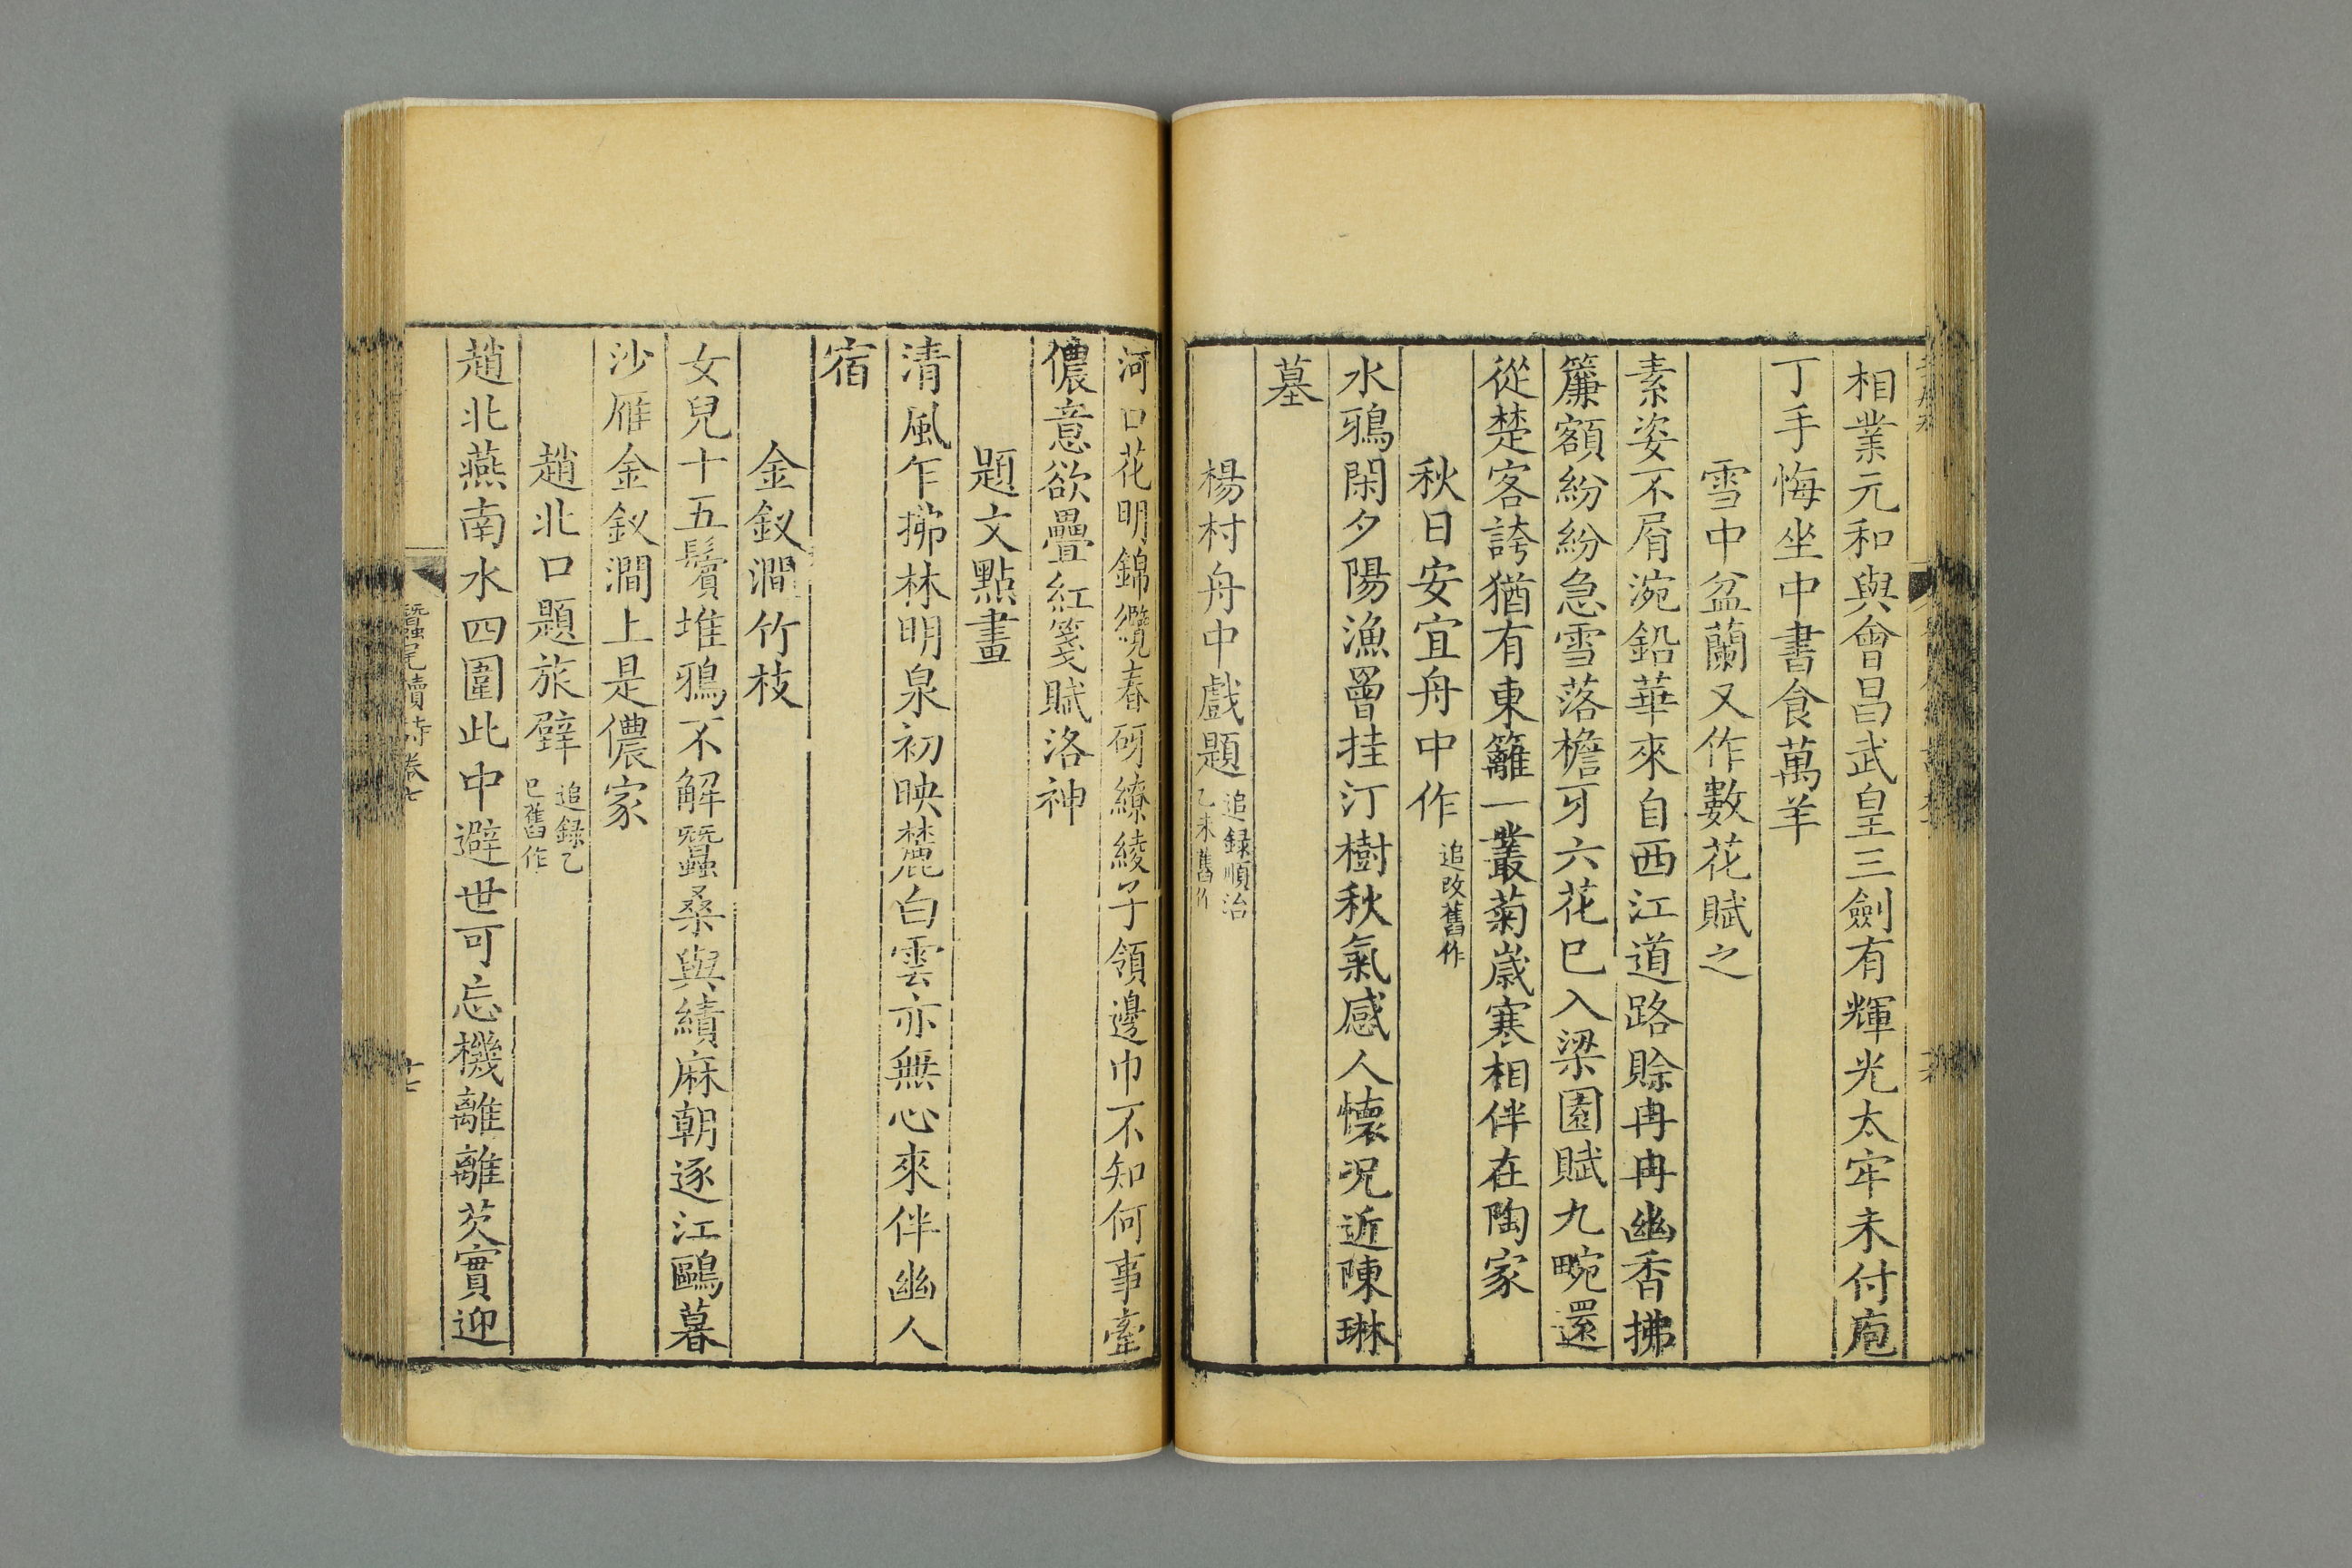 相業元和與會昌武皇三劍有輝光太牢未付庖
丁手悔坐中書食萬羊
雪中盆蘭又作數花賦之
素姿不屑涴鉛華來自西江道路賒冉冉幽香拂
簾額紛紛急雪落檐牙六花已入梁園賦九畹還
從楚客誇猶有東籬一叢菊歲寒相伴在陶家
秋日安宜舟中作追改舊作
水鴉閑夕陽漁罾挂汀樹秋氣感人懷況近陳琳
墓
楊村舟中戲題追録順治乙未舊作
河口花明錦纜春砑繚綾子領邊巾不知何事牽
儂意欲疊紅箋賦洛神
題文點畫
清風乍拂林明泉初映麓白雲亦無心來伴幽人
宿
金釵澗竹枝
女兒十五鬢堆鴉不解蠶桑與績麻朝逐江鷗暮
沙雁金釵澗上是儂家
趙北口題旅壁追録乙巳舊作
趙北燕南水四圍此中避世可忘機離離芡實迎
蠶尾續詩卷七
十七